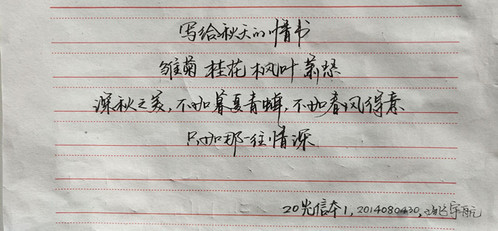 写给秋天的情书
雏菊 桂花 枫叶 萧瑟
深秋之美,不如暮夏青蝉,不如春风得意
只如那一往情深
20光信本1,2014080430,